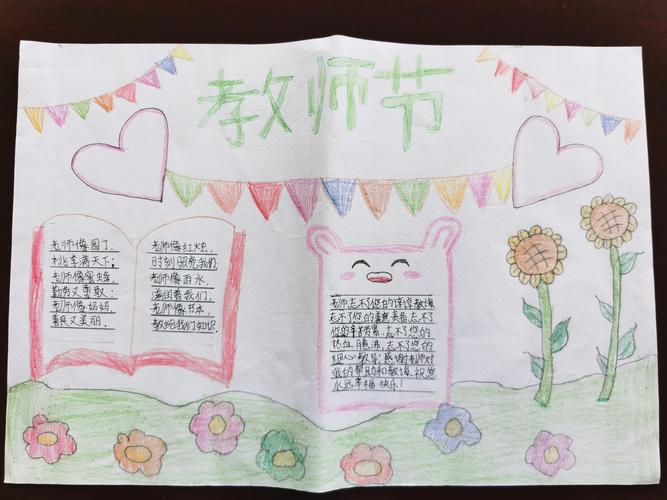 教师节
老师像园丁,
桃李满天下;
老师像蜜蜂,
勤劳又勇敢;
老师像妈妈,
善良又美丽。
老师像红烛,
时刻照亮我们,
老师像雨水,
滋润着我们,
老师像书本,
教给我们知识.
老师忘不了您的谆谆教悔
忘不了您的意表言,忘不
了您的辛苦劳累,忘不了您的
热血腾沸,忘不了您的
细心教导;感谢老师对
我的帮助和教诲,祝您
永远幸福快乐!